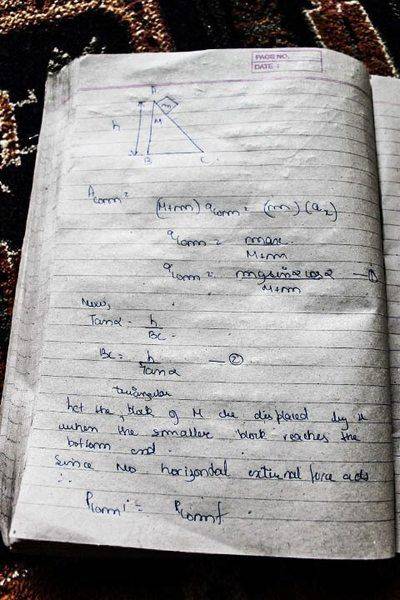 PAGE NO.
DATE :
A
m
M
h
B
C
Acom =
(M+m) acom = (m) (ax)
acom = max
M+m
acom = mg sinα cosα — ①
M+m
Now,
Tanα = h
BC
BC = h — ②
Tanα
triangular
Let the block of M be displaced by x
when the smaller block reaches the
bottom end.
Since No horizontal external force acts
∴
Pcomi = Pcomf